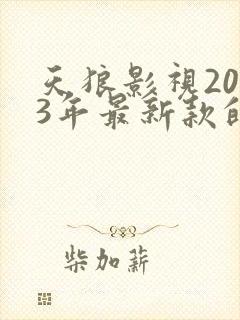 天狼影視20
3年最新款的
柴加薪